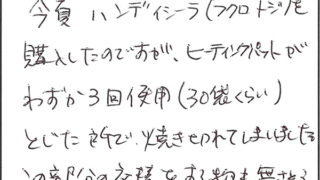 今夏 ハンディシーラ(フクロトジ)を
購入したのですが、ヒーティングパットが
わずか3回使用(30袋くらい)
とじた所で、焼き切れてしまいました
この部分の交換をする物も無さそう